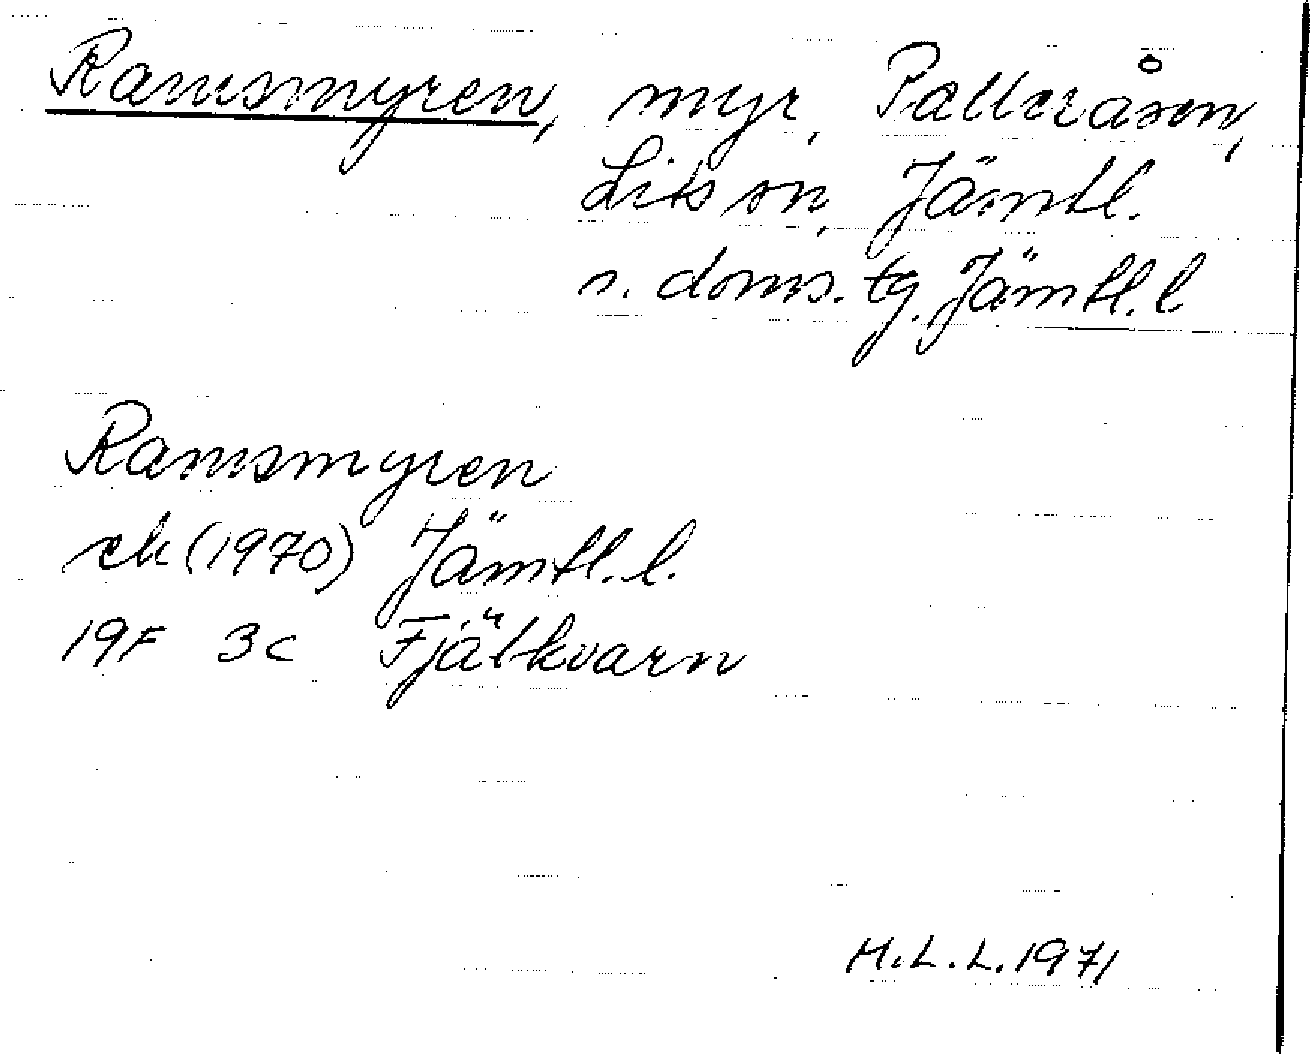 Ramsmyren, myr, Palleråsen,
Lits sn, Jämtl.
n. doms. tg. Jämtl. l
Ramsmyren
ek (1970) Jämtl. l.
19F 3c Fjälkvarn
H.L.L. 1971